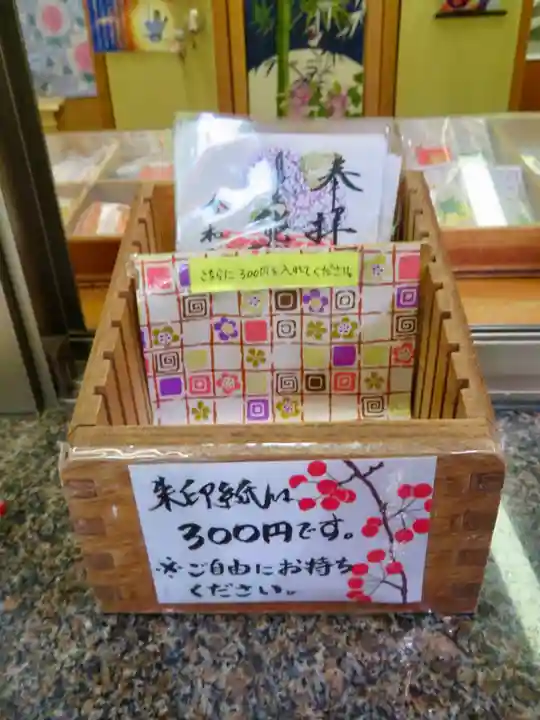 奉拝
令和
こちらに300円を入れてください。
朱印紙は
300円です。
※ご自由にお持ち
ください。